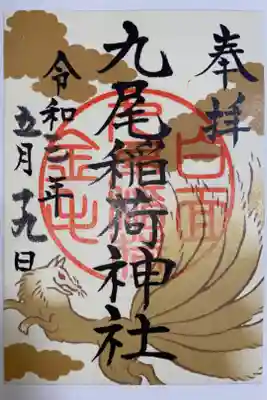 奉拝
白面
九尾稲荷神社
金毛
令和二年
五月十九日